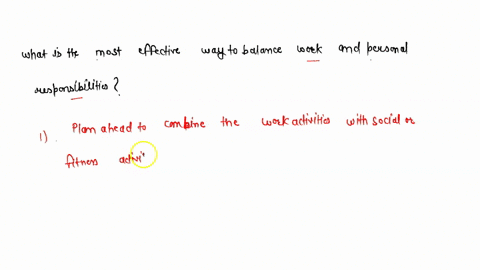 what is the most effective way to balance work and personal
responsibilities?
1) Plan ahead to combine the work activities with social or
fitness activi